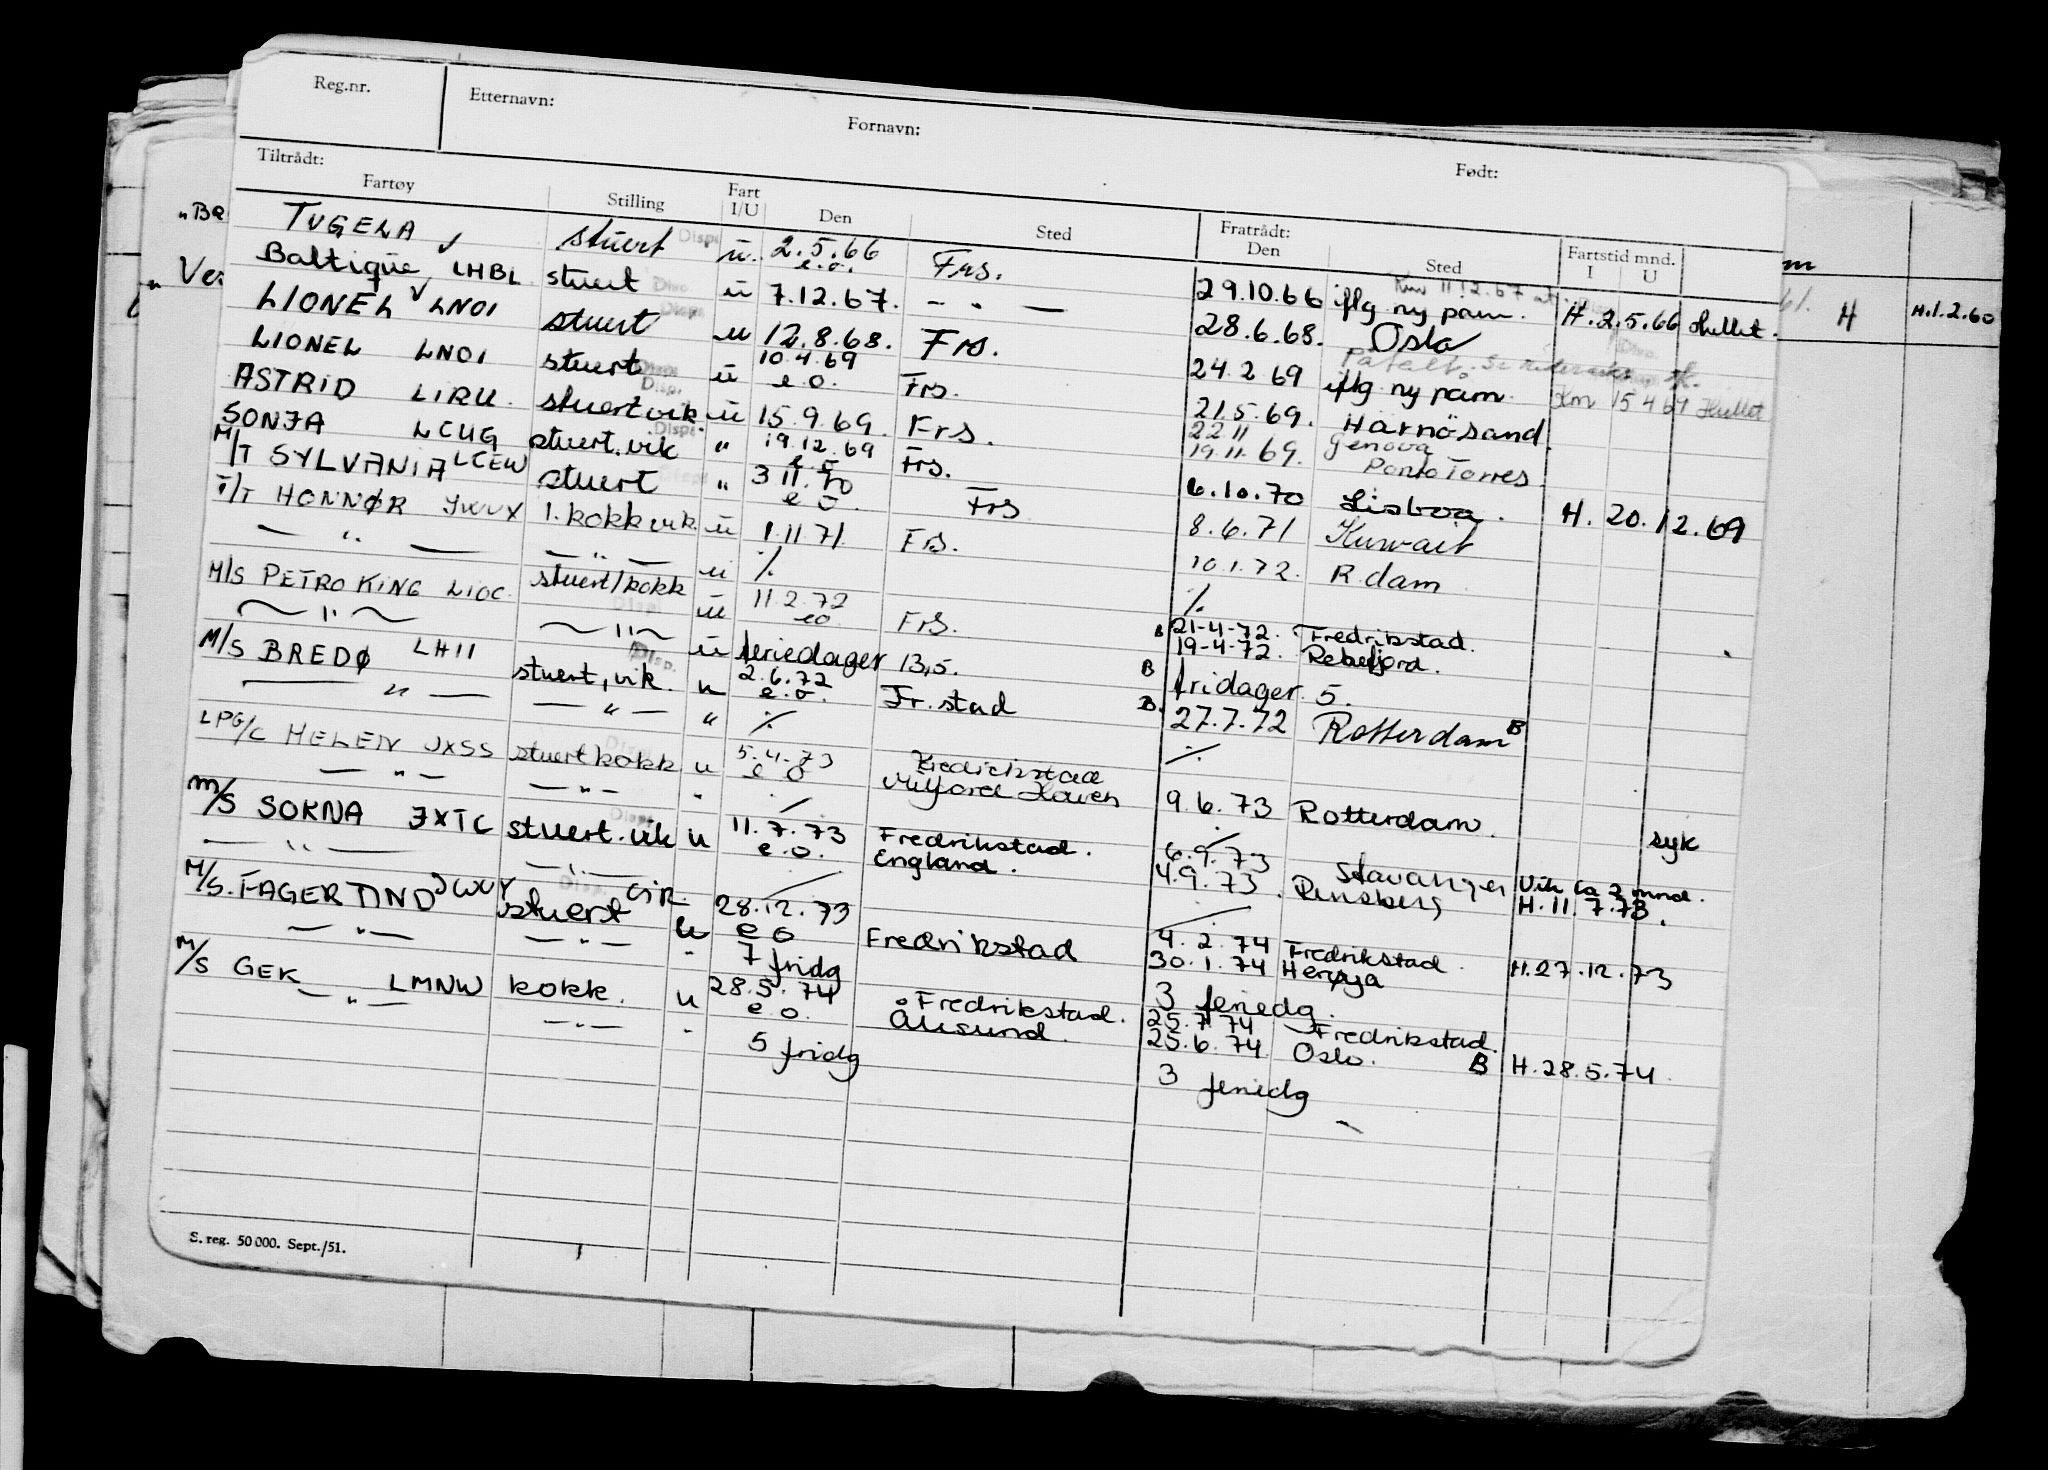 Reg.nr. Etternavn: Fornavn: Født:
Tiltrådt: Fratrådt:
Fartøy Stilling Fart I/U Den Sted Den Sted Fartstid mnd. I U
TUGELA stuert Disp. u. 2.5.66 e.o. Frs. 29.10.66 iflg ny påm. H. 2.5.66 Hullet.
Baltique LHBL stuert Disp. u 7.12.67. - " - 28.6.68. Oslo
LIONEL LNOI stuert Disp. u 12.8.68. Frs. 24.2.69 iflg ny påm. Km 15 4 69 Hullet
LIONEL LNOI stuert Disp. u 10.4.69 e.o. Frs. 21.5.69. Harnösand
ASTRID LIRU. stuert vik. Disp. u 15.9.69. Frs. 22.11 19.11.69. Genova Porto Torres
SONJA LCUG stuert, vik Disp. " 19.12.69 e.o Frs. 6.10.70 Lisboa. H. 20.12.69
M/T SYLVANIA LCEW stuert Disp. " 3 11.70 e o. Frs 8.6.71 Kuwait
T/T HONNØR JWVX 1. kokk vik. u 1.11.71. Frs. 10.1.72. R.dam
— " — — " — u ./. ./.
M/S PETRO KING LIOC. stuert/kokk Disp. u 11.2.72 eo Frs. B 21-4-72. 19-4-72. Fredrikstad. Rebefjord.
— " — — " — u feriedager 13,5. B fridager 5.
M/S BREDØ LHII stuert, vik. Disp. u 2.6.72 e.o. Fr.stad B. 27.7.72 Rotterdam B
— " — — " — " ./. ./.
LPG/C HELEN JXSS stuert kokk Disp. u 5.4.73 e o Fredrikstad Milford Haven 9.6.73 Rotterdam. syk
— " — — " — " ./. ./.
M/S SOKNA JXTC stuert. vik Disp. u 11.7.73 e.o. Fredrikstad. England. 6.9.73 4.9.73. Stavanger Rensberg Vik ca 2 mnd. H. 11.7.73.
— " — — " —
M/S. FAGERTIND JWVY stuert Disp. u 28.12.73 e o Fredrikstad 4.2.74 30.1.74 Fredrikstad. Herøya H.27.12.73
— " — — " — " 7 fridg 3 feriedg.
M/S GEK LMNW kokk. u 28.5.74 e.o. Fredrikstad. Ålesund. 25.7.74 25.6.74 Fredrikstad. Oslo. B H.28.5.74.
— " — — " — " 5 fridg 3 feriedg
S. reg. 50 000. Sept./51.
"Ba
" Ver
H H.1.2.60